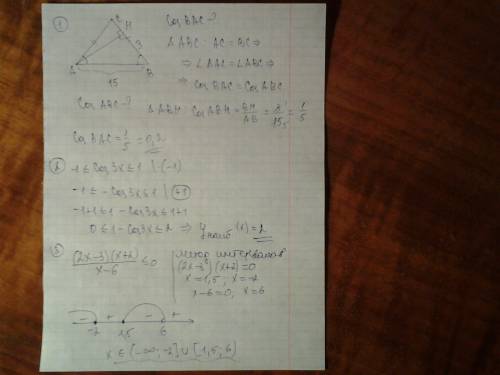 1
C
H
A
B
15
Cos BAC - ?
△ABC : AC = BC ⇒
⇒ ∠BAC = ∠ABC ⇒
⇒ Cos BAC = Cos ABC
Cos ABC - ? △ABH : Cos ABH = BH/AB = 3/15 = 1/5
Cos BAC = 1/5 = 0,2
2
-1 ≤ Cos 3x ≤ 1 | · (-1)
-1 ≤ - Cos 3x ≤ 1 | +1
-1+1 ≤ 1 - Cos 3x ≤ 1+1
0 ≤ 1 - Cos 3x ≤ 2 ⇒ У наиб (1) = 2
3
(2x-3)(x+2)/(x-6) ≤ 0
метод интервалов
(2x-3)(x+2) = 0
x = 1,5 ; x = -2
x-6=0, x=6
- + - +
-2 1,5 6
x ∈ (-∞; -2] ∪ [1,5; 6)